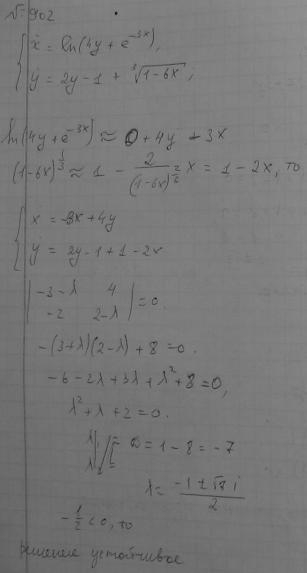 №902
{ ẋ = ln(4y + e^{-3x}),
ẏ = 2y - 1 + ∛(1-6x) ;
ln(4y + e^{-3x}) ≈ 0 + 4y - 3x
(1-6x)^{1/3} ≈ 1 - 2/(1-6x)^{2/3} x = 1 - 2x, то
{ x = -3x + 4y
y = 2y - 1 + 1 - 2x
| -3-λ 4 |
| -2 2-λ | = 0.
-(3+λ)(2-λ) + 8 = 0.
-6 - 2λ + 3λ + λ² + 8 = 0,
λ² + λ + 2 = 0.
D = 1 - 8 = -7
λ = (-1 ± √7 i)/2
-1/2 < 0, то
решение устойчивое